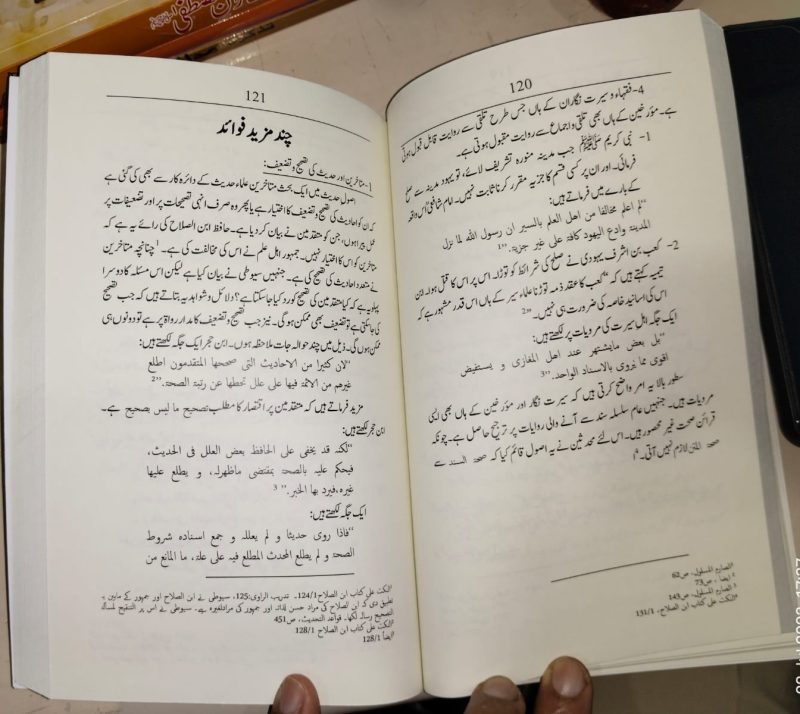 120
4- فقہاء و سیرت نگاران کے ہاں جس طرح تلقی سے روایت قابل قبول ہوتی
ہے۔ مؤرخین کے ہاں بھی تلقی و اجماع سے روایت مقبول ہوتی ہے۔
1- نبی کریم ﷺ جب مدینہ منورہ تشریف لائے، تو یہود مدینہ سے صلح
فرمائی۔ اور ان پر کسی قسم کا جزیہ مقرر کرنا ثابت نہیں۔ امام شافعی اس واقعہ
کے بارے میں فرماتے ہیں:
"لم اعلم مخالفا من اهل العلم بالسير ان رسول الله لما نزل
المدينة وادع اليهود كافة على غير جزية."1
2- کعب بن اشرف یہودی نے صلح کی شرائط کو توڑا۔ اس پر اس کا قتل ہوا۔ ابن
تیمیہ کہتے ہیں کہ "کعب کا عقد ذمہ توڑنا علماء سیر کے ہاں اس قدر مشہور ہے کہ
اس کی اسانید خاصہ کی ضرورت ہی نہیں۔"2
ایک جگہ اہل سیرت کی مرویات پر لکھتے ہیں:
"بل بعض مايشتهر عند اهل المغازى و يستفيض
اقوى مما يروى بالاسناد الواحد."3
سطور بالا یہ امر واضح کرتی ہیں کہ سیرت نگار اور مؤرخین کے ہاں بھی ایسی
مرویات ہیں۔ جنہیں عام سلسلہ سند سے آنے والی روایات پر ترجیح حاصل ہے۔ چونکہ
قرائن صحت غیر محصور ہیں۔ اس لئے محدثین نے یہ اصول قائم کیا کہ صحۃ السند سے
صحۃ المتن لازم نہیں آتی۔4
1الصارم المسلول، ص62
2 ایضا، ص73
3 الصارم المسلول، ص143
4النکت علی کتاب ابن الصلاح، 131/1
121
چند مزید فوائد
1- متاخرین اور حدیث کی تصحیح و تضعیف:
اصول حدیث میں ایک بحث متاخرین علماء حدیث کے دائرہ کار سے بھی کی گئی ہے
کہ ان کو احادیث کی تصحیح و تضعیف کا اختیار ہے یا پھر وہ صرف انہی تصحیحات پر اور تضعیفات پر
عمل پیرا ہوں، جن کو متقدمین نے بیان کر دیا ہے۔ حافظ ابن الصلاح کی رائے یہ ہے کہ
متاخرین کو اس کا اختیار نہیں۔ جمہور اہل علم نے اس کی مخالفت کی ہے۔1 چنانچہ متاخرین
نے متعدد احادیث کی تصحیح کی ہے۔ جنہیں سیوطی نے بیان کیا ہے لیکن اس مسئلہ کا دوسرا
پہلو یہ ہے کہ کیا متقدمین کی تصحیح کو رد کیا جا سکتا ہے؟ دلائل و شواہد یہ بتاتے ہیں کہ جب تصحیح
کی جا سکتی ہے تو تضعیف بھی ممکن ہوگی۔ نیز جب تصحیح و تضعیف کا مدار رواۃ پر ہے تو دونوں ہی
ممکن ہوں گی۔ ذیل میں چند حوالہ جات ملاحظہ ہوں۔ ابن حجر ایک جگہ لکھتے ہیں:
"لان كثيرا من الاحاديث التى صححها المتقدمون اطلع
غيرهم من الائمة فيها على علل تحطها عن رتبة الصحة."2
مزید فرماتے ہیں کہ متقدمین پر اقتصار کا مطلب تصحیح ما لیس بصحیح ہے۔
ابن حجر لکھتے ہیں:
"لكنه قد يخفى على الحافظ بعض العلل فى الحديث،
فيحكم عليه بالصحة بمقتضى ماظهرله، و يطلع عليها
غيره، فيرد بها الخبر."3
ایک جگہ لکھتے ہیں:
"فاذا روى حديثا و لم يعلله و جمع اسناده شروط
الصحة و لم يطلع المحدث المطلع فيه على علة، ما المانع من
1النکت علی کتاب ابن الصلاح 124/1۔ تدریب الراوی: 125، سیوطی نے ابن الصلاح اور جمہور کے مابین یہ
تطبیق دی کہ ابن الصلاح کی مراد حسن لذاتہ اور جمہور کی مراد لغیرہ ہے۔ سیوطی نے اس پر التنقیح لمسألة
التصحیح رسالہ لکھا۔ قواعد التحدیث، ص451
2النکت علی کتاب ابن الصلاح 128/1
3ایضاً 128/1